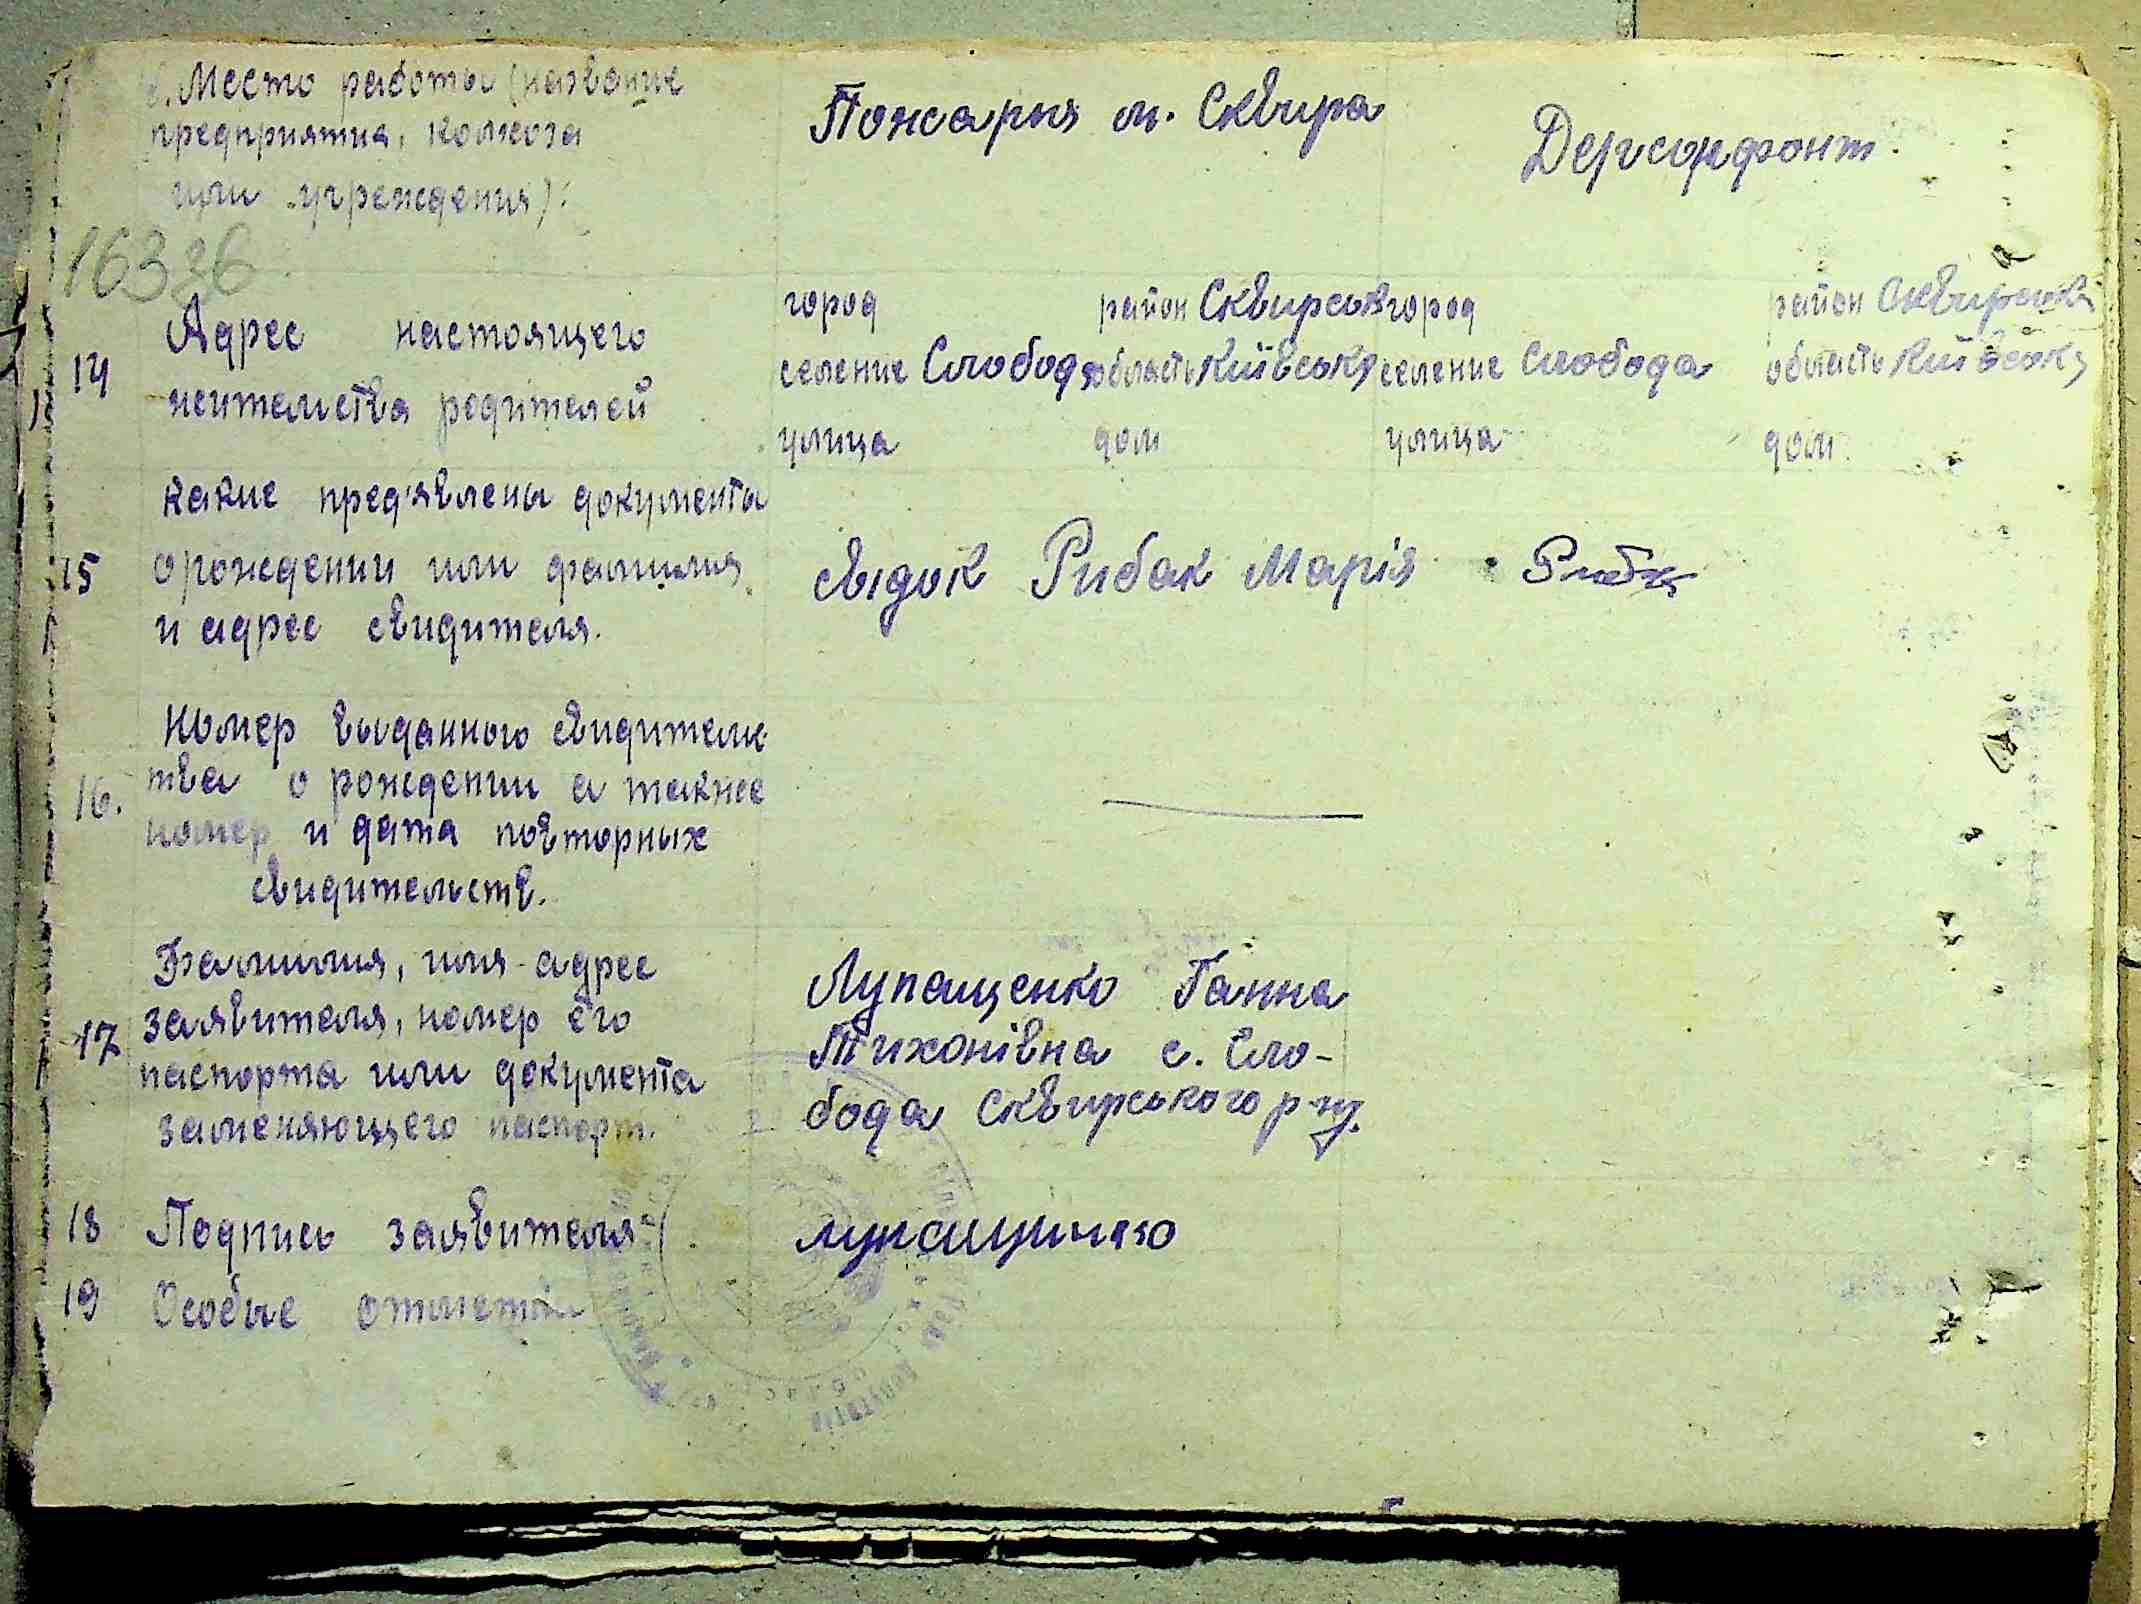 Место работы (название
предприятия, колхоза
или учреждения):
Пожарня м. Сквира
Держсорфонт.
16336
14
Адрес настоящего
жительства родителей
город район Сквирськ
селение Слобода область Київська
улица дом
город район Сквирськ
селение Слобода область Київська
улица дом
15
какие пред'явлены документы
о рождении или фамилия
и адрес свидителя.
свідок Рибак Марія
16.
номер выданного свидительс
тва о рождении а также
номер и дата повторных
свидительств.
17
Фамилия, имя адрес
заявителя, номер его
паспорта или документа
заменяющего паспорт.
Лупащенко Ганна
Тихонівна с. Сло-
бода Сквирського р-ну.
18 Подпись заявителя
19 Особые отметки